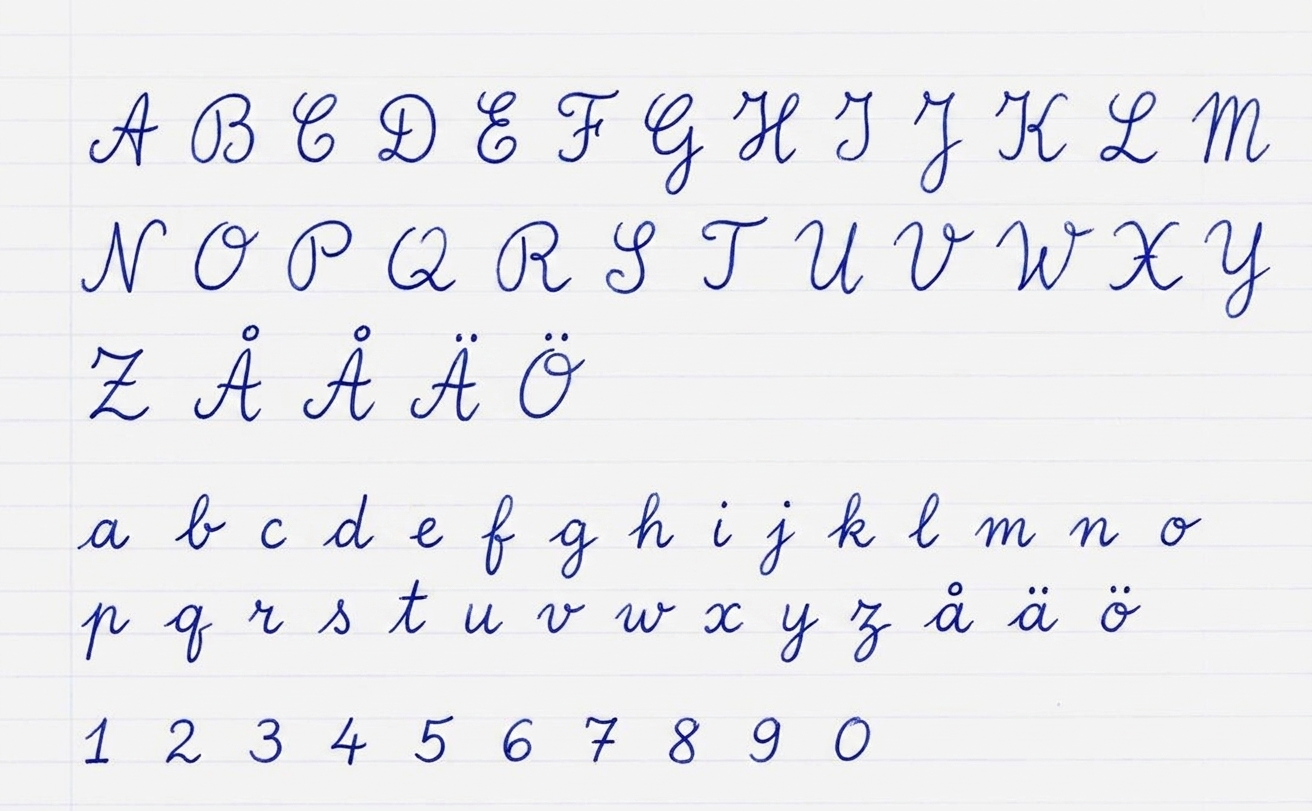 A B C D E F G H I J K L M
N O P Q R S T U V W X Y
Z Å Å Ä Ö
a b c d e f g h i j k l m n o
p q r s t u v w x y z å ä ö
1 2 3 4 5 6 7 8 9 0